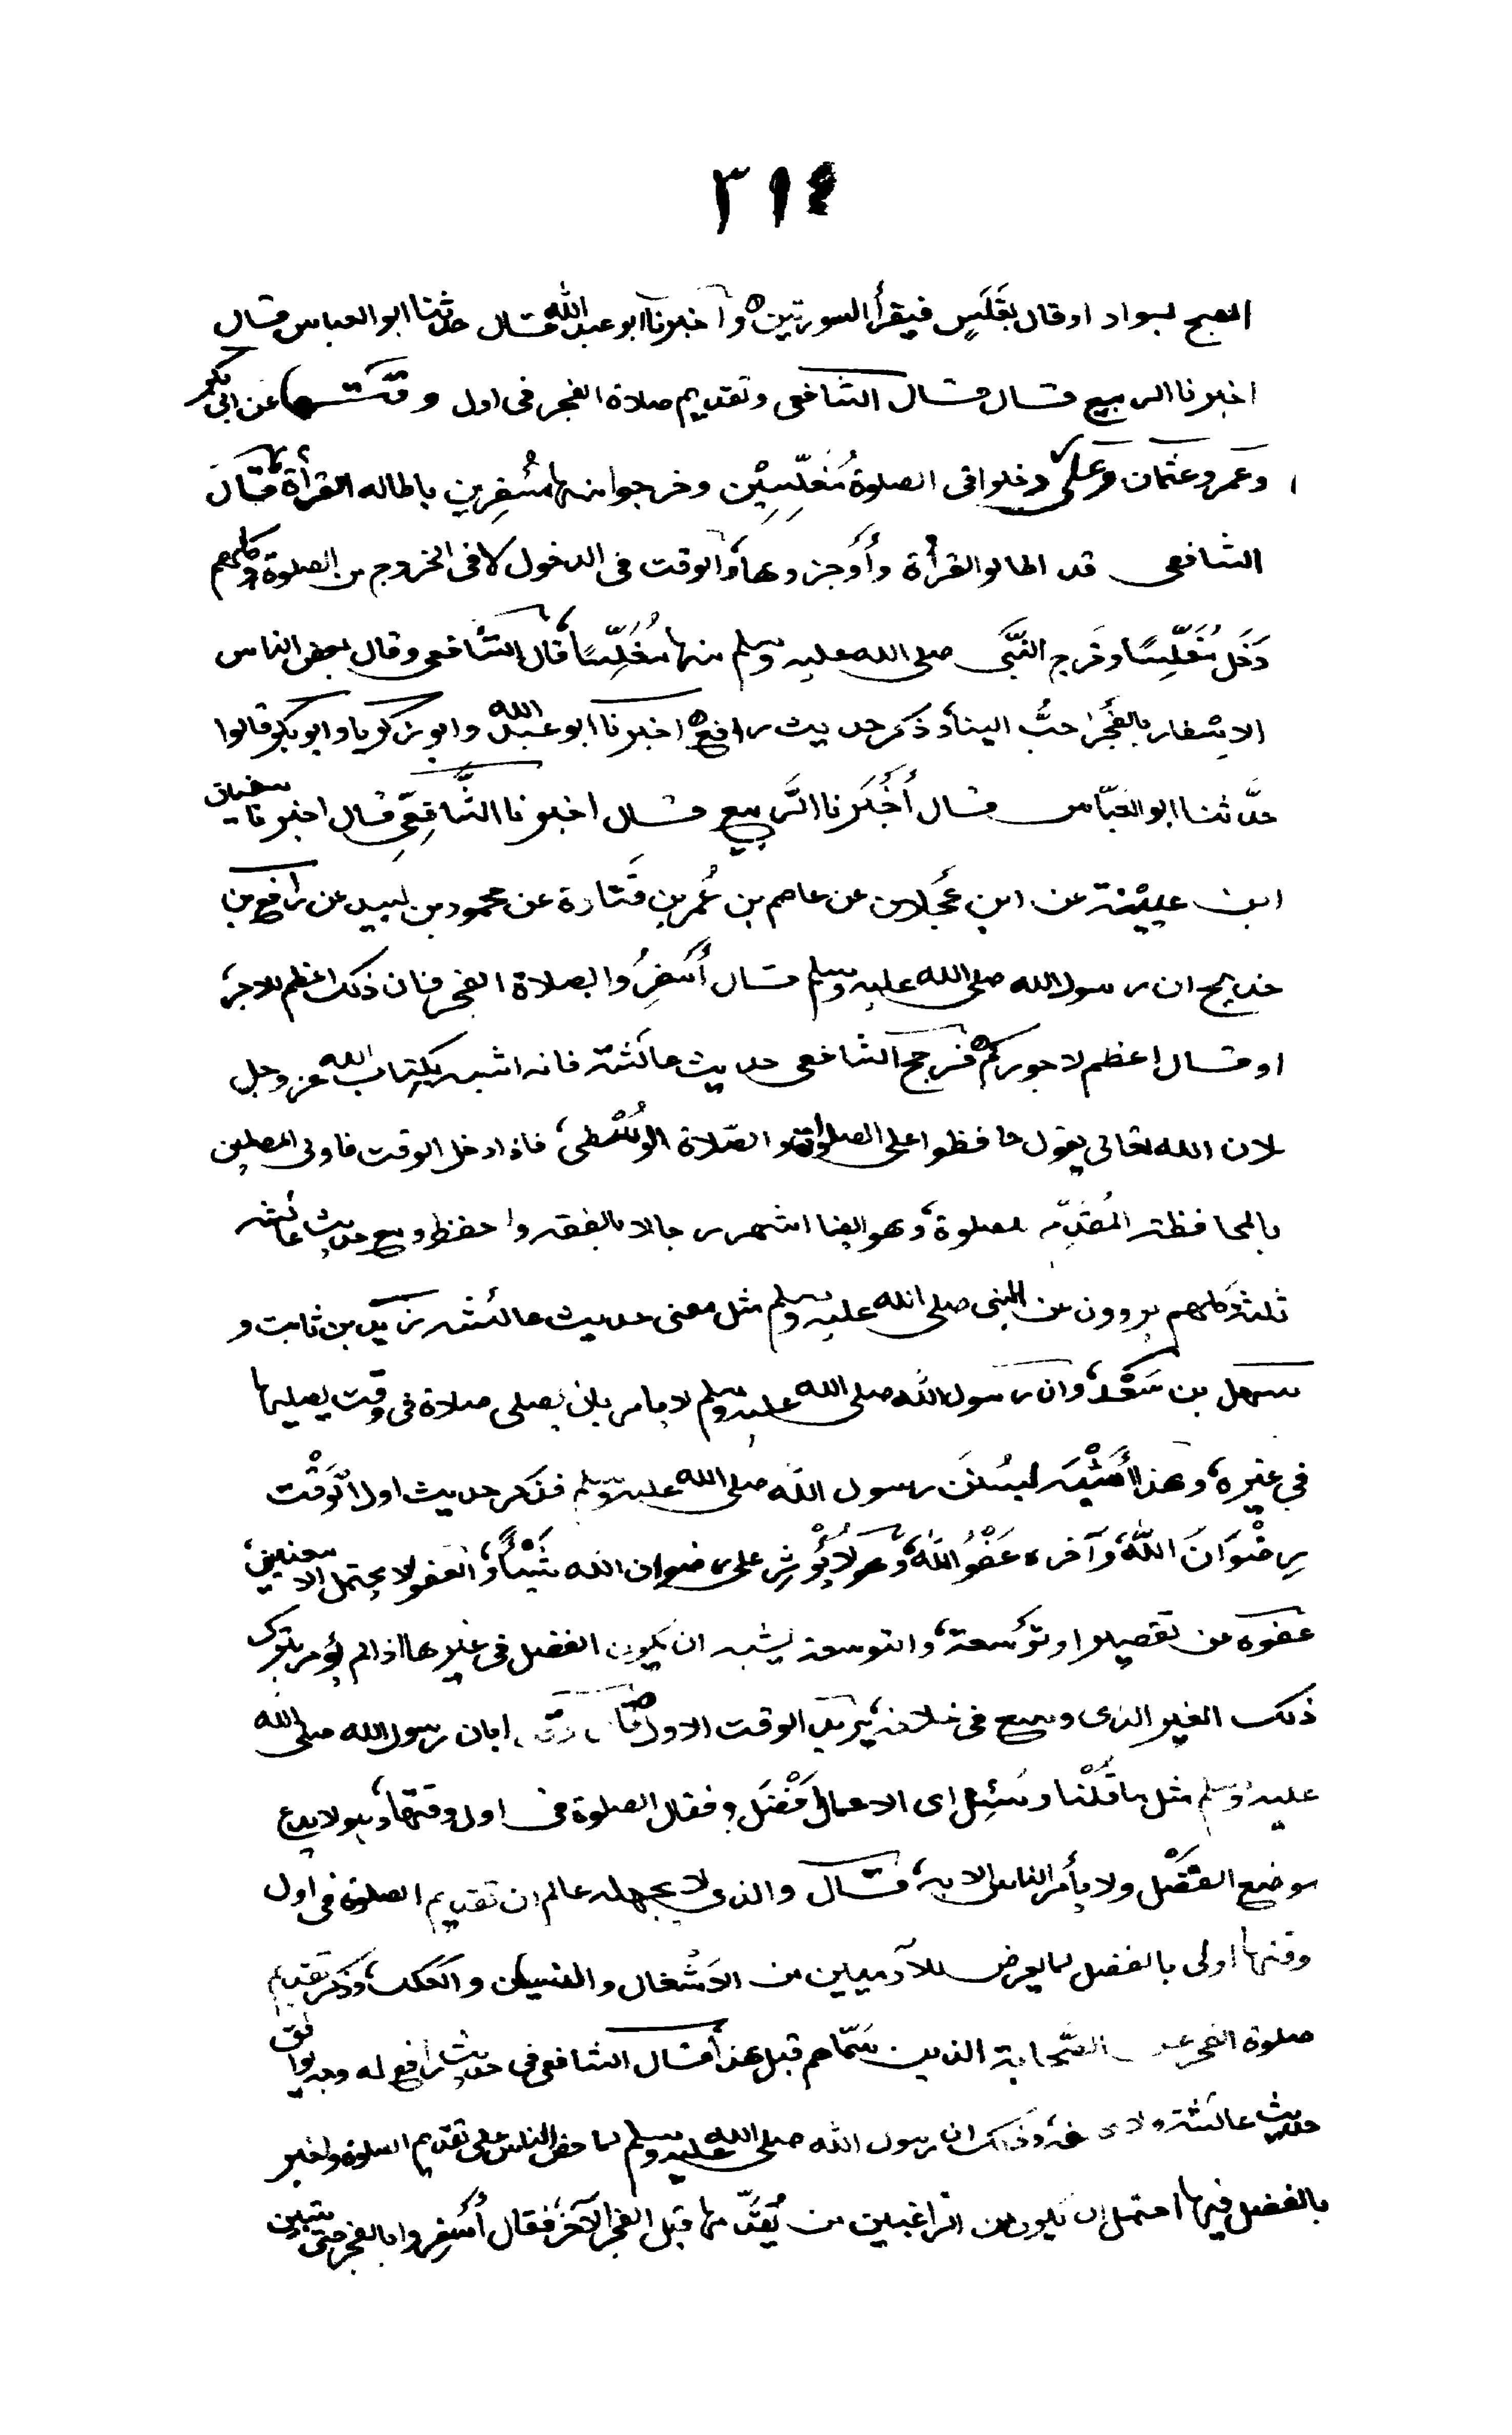 ٣١٤
الصبح لسواد او قال بغَلَسٍ فيقرأ السورتين ه و اخبرنا ابو عبد الله قال حدثنا ابو العباس قال
اخبرنا الربيع قال قال الشافعى وتقديم صلاة الفجر فى اول وقتها عن ابى بكر
وعمر وعثمان وعلى دخلوا فى الصلوة مُغَلِّسِيْن وخرجوا منها مُسْفِرين باطاله القرأة، قال
الشافعى قد اطالو القرأة وأَوجزوها، والوقت فى الدخول لا فى الخروج من الصلوة وكلهم
دَخَل مُغَلِّسًا وخرج النَّبى صلى الله عليه وسلم منها مُغَلِّسًا، قال الشافعى وقال بعض الناس
الاسْفار بالفجر احبُّ الينا، وذكر حديث رافع ه اخبرنا ابو عبد الله وابو زكريا وابو بكر قالوا
حدَّثنا ابو العَبّاس قال أَخْبَرنا الرَّبيع قال اخبرنا الشَّافِعِى قال اخبرنا سفيان
ابن عيينة عن ابن عَجْلان عن عاصم بن عُمر بن قَتادة عن محمود بن لبيد عن رافع بن
خديج ان رسول الله صلى الله عليه وسلم قال أَسْفِرُوا بصلاة الفجر فان ذلك اعظم للاجر،
او قال اعظم لاجوركم ه فرجح الشافعى حديث عائشة فانه اشبه بكتاب الله عز وجل
لان الله تعالى يقول حافظوا على الصلوات والصّلاة الوُسْطى، فاذا دخل الوقت فاولى المصلين
بالمحافظة المُقدِّم للصلوة، وهو ايضا اشهر رجالا بالفقه واحفظ ومع حديث عائشه
ثلثة كلهم يروون عن النبى صلى الله عليه وسلم مثل معنى حديث عائشه زيد بن ثابت و
سهل بن سَعْد، وان رسول الله صلى الله عليه وسلم لا يامر بان يصلى صلاة فى وقت يصليها
فى غيره، وهذا أَشْبَه بسُنَن رسول الله صلى الله عليه وسلم فذكر حديث اول الوَقْت
رِضْوَانَ اللهُ، وآخره عَفْوُ اللهُ، وهو لا يُؤْثِر على رضوان الله شَيْئًا، والعفو لا يحتمل الا معنيين،
عفوه عن تقصير او تَوْسعة، والتوسعة يشبه ان يكون الفضل فى غيرها اذا لم يؤمر بترك
ذلك الغير الذى وسع فى خلافه، يريد الوقت الاول ه قال وقد ابان رسول الله صلى الله
عليه وسلم مثل ما قُلْنا وسُئِل اى الاعمال افضَل؟ فقال الصلوة فى اول وقتها، وهو لا يدع
موضع الفَضْل ولا يأمر الناس الا به، قال والذى لا يجهله عالم ان تقديم الصلوة فى اول
وقتها اولى بالفضل لما يعرض للآدميين من الاَشْغال والنسيان والعلل، وذكر تقديم
صلوة الفجر عن الصَّحابة الذين سَمّاهم قبل هذا، قال الشافعى فى حديث رافع له وجه يوافق
حديث عائشة ولا يخالفه، وذلك ان رسول الله صلى الله عليه وسلم لما حض الناس على تقديم الصلوة واخبر
بالفضل فيها احتمل ان يكون من الراغبين من يُقَدِّمها قبل الفجر الآخر، فقال أَسْفِروا بالفجر حتى يتبين